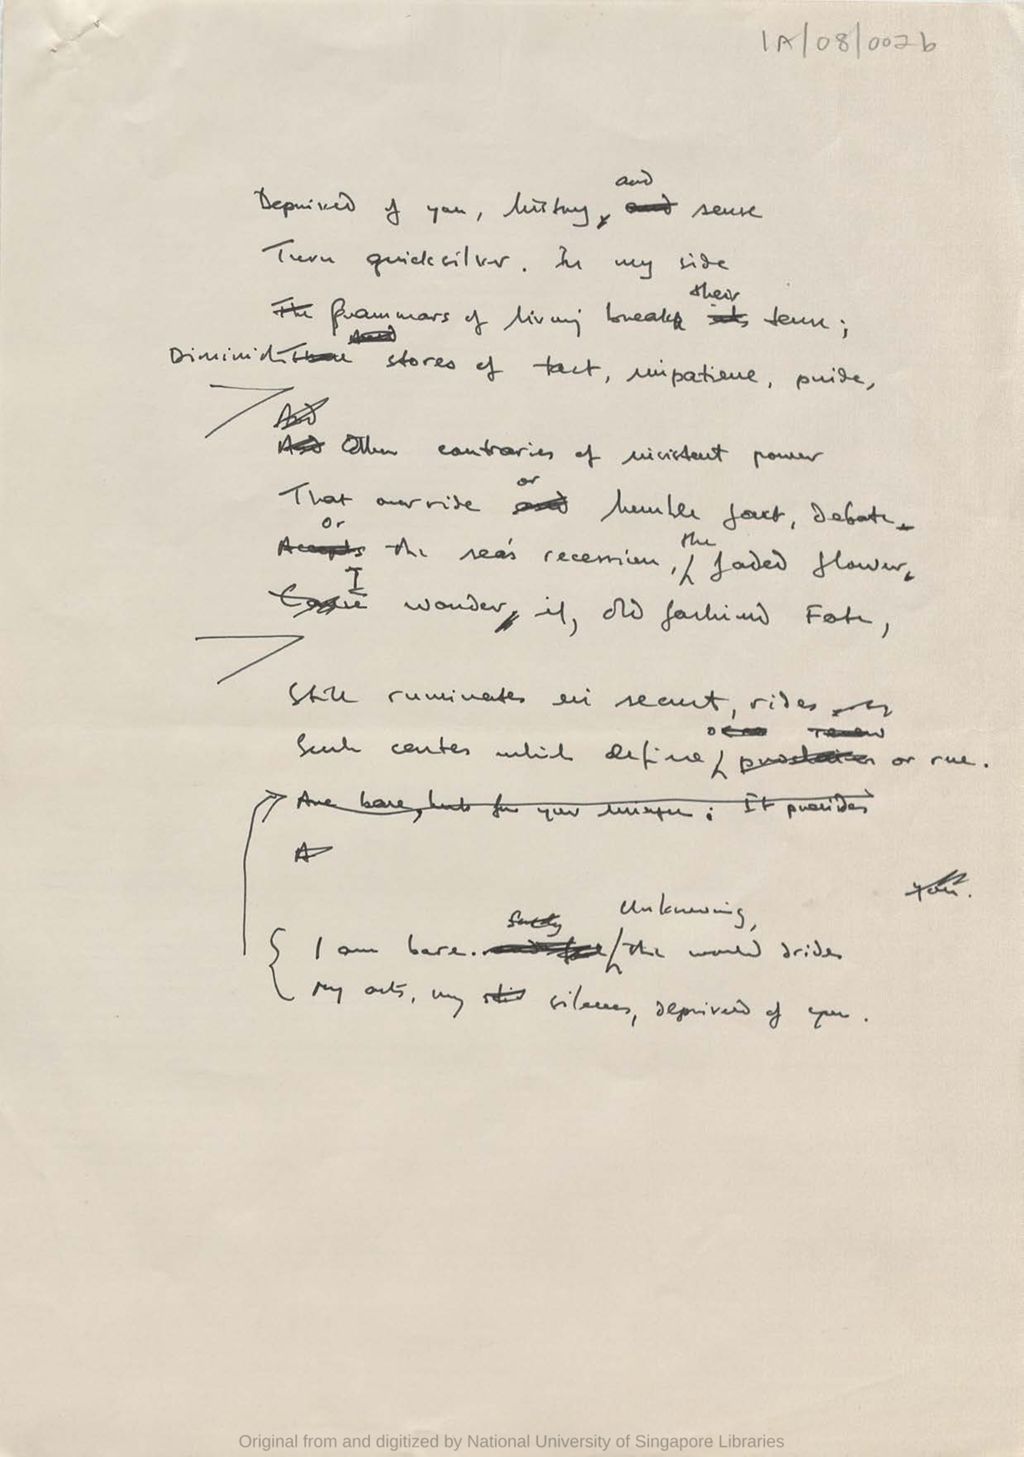 1A/08/002b
and
Deprived of you, history, and sense
Turn quicksilver. In my side
their
The Grammars of living break its tense;
And
Diminish stores of tact, impatience, pride,
And
And Other contraries of insistent power
or
That override and humble fact, debate
or the
Accepts the sea's recession, faded flower,
I
wonder, if, old fashioned Fate,
Still ruminates in secret, rides
Such centes which define or rue.
Are bare, but for your unique: It provides
A
you.
Unknowing,
I am bare. the world drides
My acts, my silences, deprived of you.
Original from and digitized by National University of Singapore Libraries